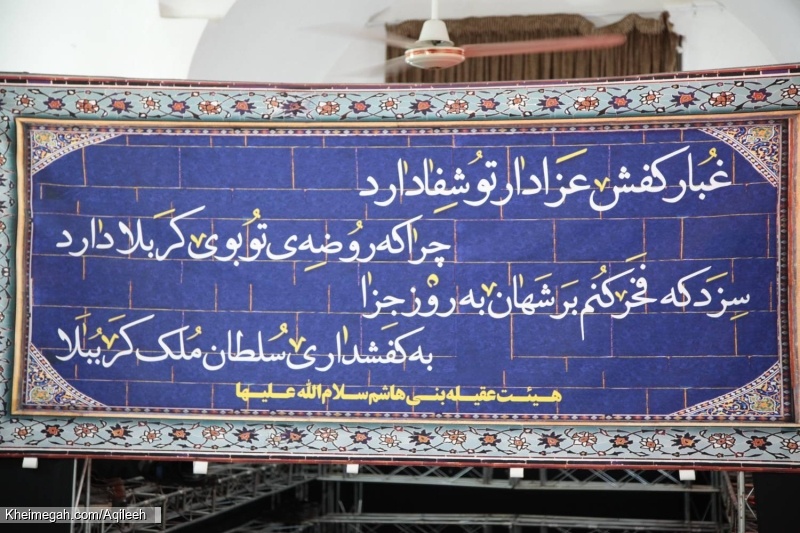 غُبار کفش عَزادار تو شِفا دارد
چِرا که رُوضه‌ِی تو بُوی کَربلا دارد
سِزَد که فَخر کُنم بَر شَهان به روز جزا
به کَفشداری سُلطان مُلک کَرببُلا
هیئت عقیله بنی هاشم سلام الله علیها
Kheimegah.com/Aqileeh